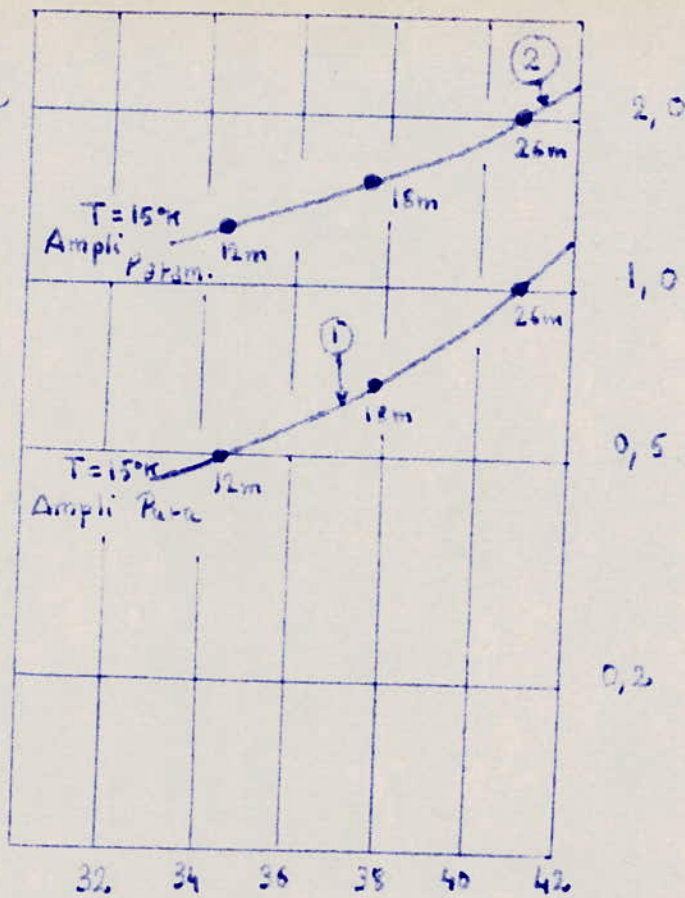 2
2,0
26m
18m
T=15°K
12m
Ampli
Param.
1,0
26m
1
18m
0,5
T=15°K
12m
Ampli Para
0,2
32 34 36 38 40 42